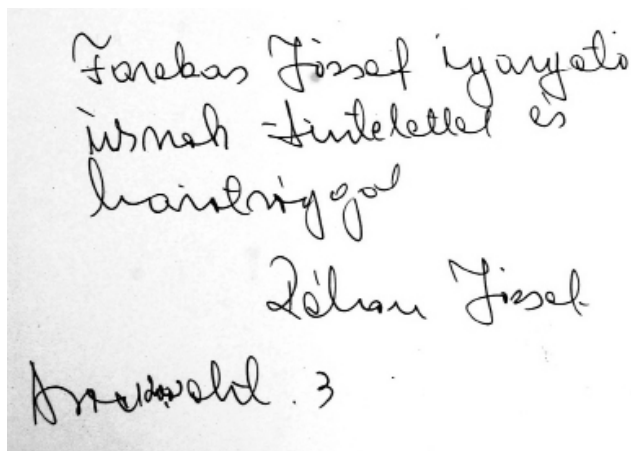 Farekas József igazgató
úrnak tisztelettel és
barátsággal
József
3